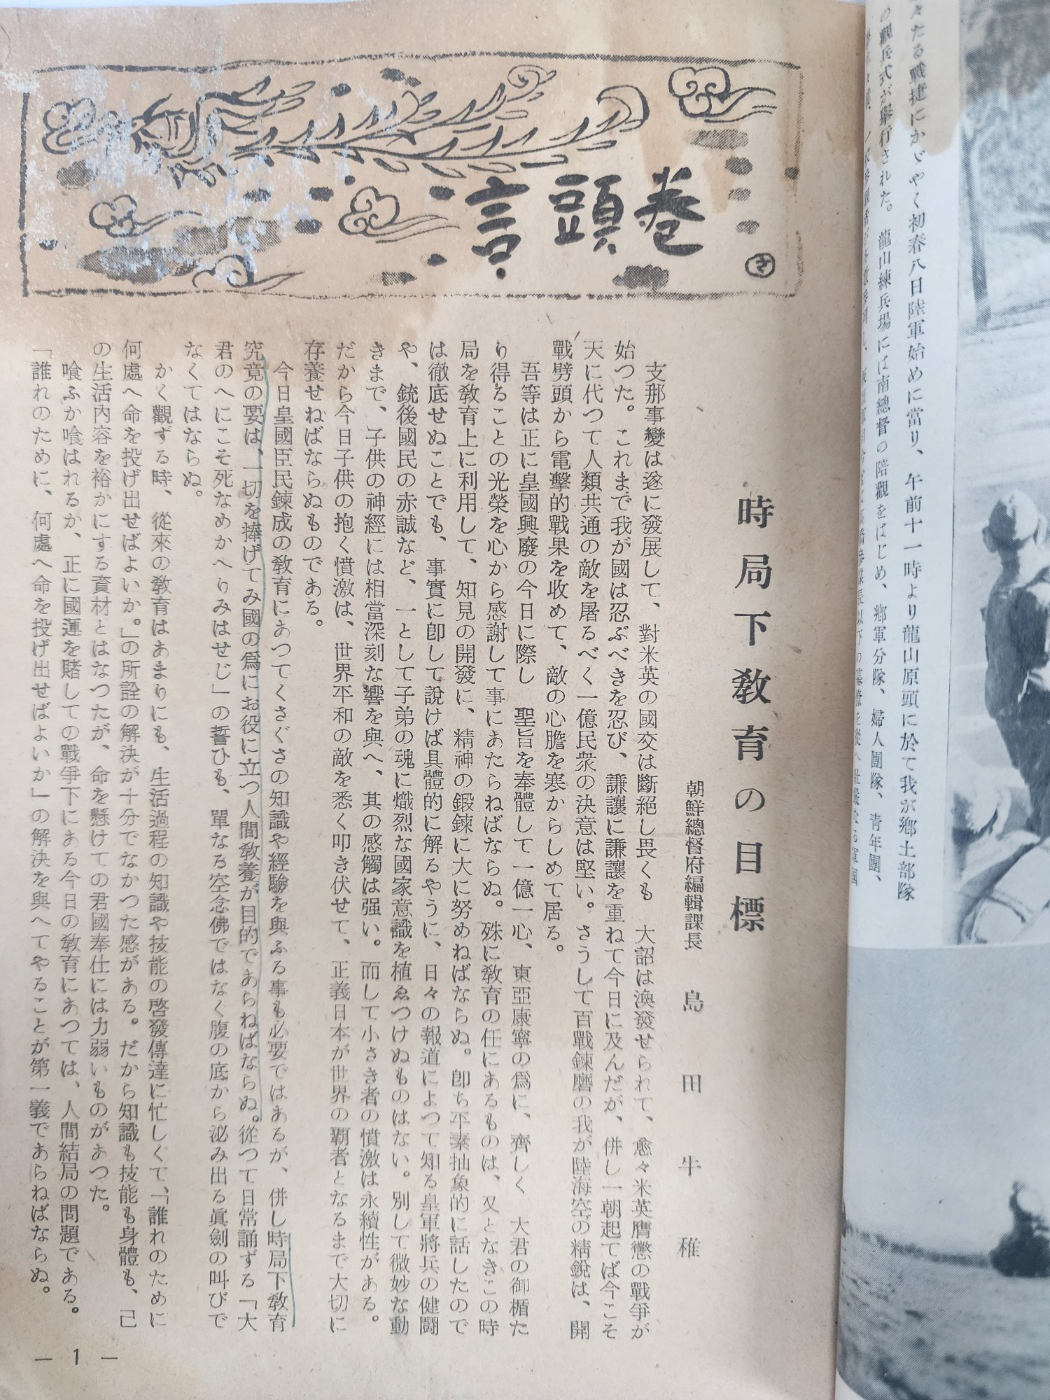 々たる戰捷にかゞやく初春八日陸軍始めに當り、午前十一時より龍山原頭に於て我が鄕土部隊
の觀兵式が擧行された。龍山練兵場には南總督の陪觀をはじめ、鄕軍分隊、婦人團隊、靑年團、
卷頭言
時局下敎育の目標
朝鮮總督府編輯課長 島田牛稚
支那事變は遂に發展して、對米英の國交は斷絕し畏くも 大詔は渙發せられて、愈々米英膺懲の戰爭が
始つた。これまで我が國は忍ぶべきを忍び、謙讓に謙讓を重ねて今日に及んだが、併し一朝起てば今こそ
天に代つて人類共通の敵を屠るべく一億民衆の決意は堅い。さうして百戰鍊磨の我が陸海空の精銳は、開
戰劈頭から電擊的戰果を收めて、敵の心膽を寒からしめて居る。
吾等は正に皇國興廢の今日に際し 聖旨を奉體して一億一心、東亞康寧の爲に、齊しく 大君の御楯た
り得ることの光榮を心から感謝して事にあたらねばならぬ。殊に敎育の任にあるものは、又となきこの時
局を敎育上に利用して、知見の開發に、精神の鍛鍊に大に努めねばならぬ。卽ち平素抽象的に話したので
は徹底せぬことでも、事實に卽して說けば具體的に解るやうに、日々の報道によつて知る皇軍將兵の健鬪
や、銃後國民の赤誠など、一として子弟の魂に熾烈な國家意識を植ゑつけぬものはない。別して微妙な動
きまで、子供の神經には相當深刻な響を與へ、其の感觸は强い。而して小さき者の憤激は永續性がある。
だから今日子供の抱く憤激は、世界平和の敵を悉く叩き伏せて、正義日本が世界の覇者となるまで大切に
存養せねばならぬものである。
今日皇國臣民鍊成の敎育にあつてくさぐさの知識や經驗を與ふる事も必要ではあるが、併し時局下敎育
究竟の要は、一切を捧げてみ國の爲にお役に立つ人間敎養が目的であらねばならぬ。從つて日常誦ずる「大
君のへにこそ死なめかへりみはせじ」の誓ひも、單なる空念佛ではなく腹の底から泌み出る眞劍の叫びで
なくてはならぬ。
かく觀ずる時、從來の敎育はあまりにも、生活過程の知識や技能の啓發傳達に忙しくて、「誰れのために
何處へ命を投げ出せばよいか。」の所詮の解決が十分でなかつた感がある。だから知識も技能も身體も、己
の生活內容を裕かにする資材とはなつたが、命を懸けての君國奉仕には力弱いものがあつた。
喰ふか喰はれるか、正に國運を賭しての戰爭下にある今日の敎育にあつては、人間結局の問題である。
「誰れのために、何處へ命を投げ出せばよいか」の解決を與へてやることが第一義であらねばならぬ。
— 1 —